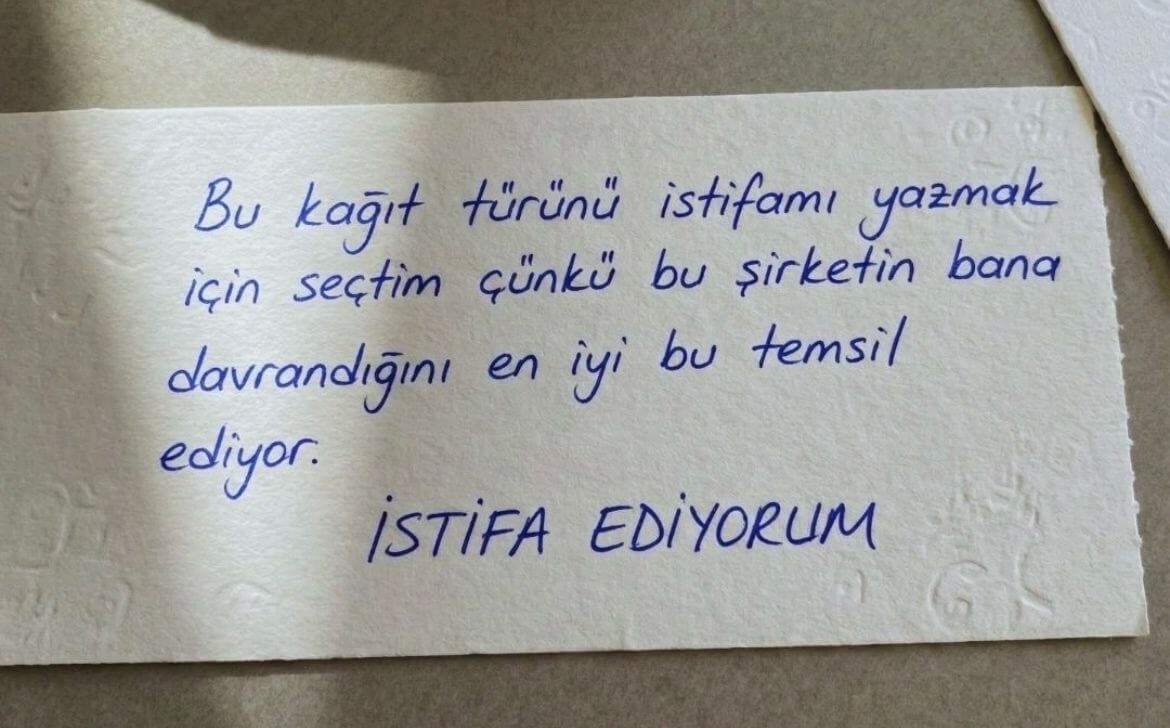 Bu kağıt türünü istifamı yazmak
için seçtim çünkü bu şirketin bana
davrandığını en iyi bu temsil
ediyor.
İSTİFA EDİYORUM